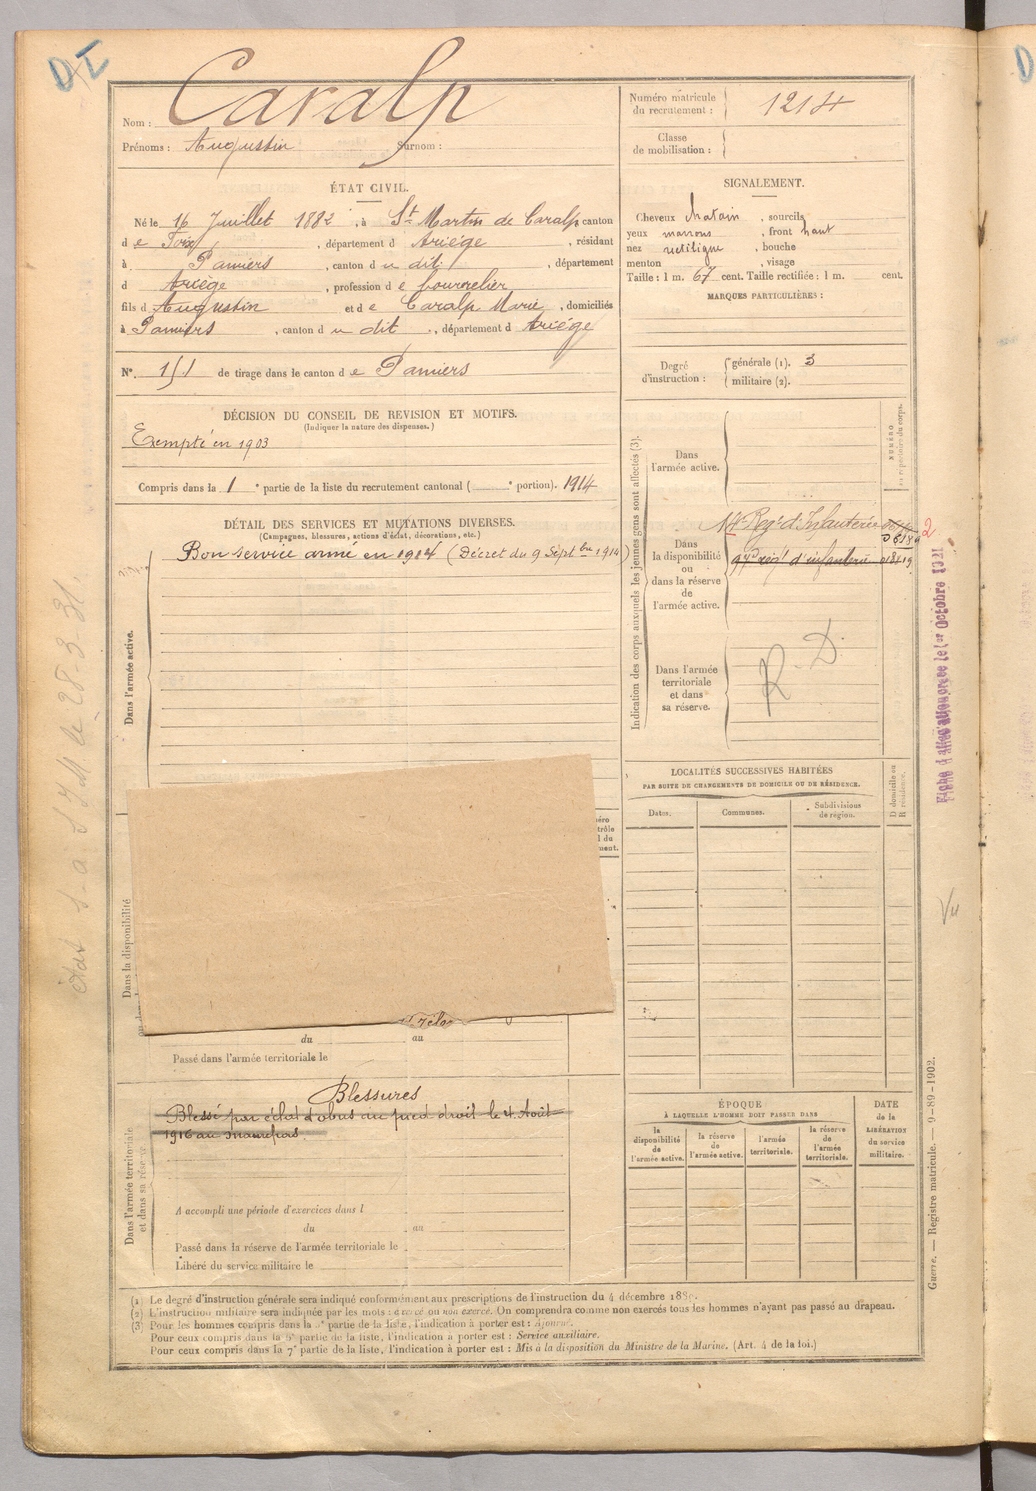 Nom : Caralp
Prénoms : Augustin Surnom :
Numéro matricule du recrutement : 1214
Classe de mobilisation :
ÉTAT CIVIL.
Né le 16 Juillet 1882, à St Martin de Caralp canton
d e Foix, département d Ariège, résidant
à Pamiers, canton d u dit, département
d Ariège, profession d e bourrelier
fils d Augustin et d e Caralp Marie, domiciliés
à Pamiers, canton d u dit, département d Ariège
N° 151 de tirage dans le canton d e Pamiers
SIGNALEMENT.
Cheveux chatain, sourcils
yeux marrons, front haut
nez rectiligne, bouche
menton, visage
Taille : 1 m. 67 cent. Taille rectifiée : 1 m. cent.
MARQUES PARTICULIÈRES :
Degré d'instruction : générale (1). 3
militaire (2).
DÉCISION DU CONSEIL DE REVISION ET MOTIFS.
(Indiquer la nature des dispenses.)
Exempté en 1903
Compris dans la 1e partie de la liste du recrutement cantonal ( e portion). 1914
DÉTAIL DES SERVICES ET MUTATIONS DIVERSES.
(Campagnes, blessures, actions d'éclat, décorations, etc.)
Bon service armé en 1914 (Décret du 9 Septbre 1914)
Dans l'armée active.
Dans la disponibilité
du au
Passé dans l'armée territoriale le
Blessures
Blessé par éclat d'obus au pied droit le 4 Août
1916 au
Dans l'armée territoriale
et dans sa réserve
A accompli une période d'exercices dans l
du au
Passé dans la réserve de l'armée territoriale le
Libéré du service militaire le
Indication des corps auxquels les jeunes gens sont affectés (3).
NUMÉRO
au répertoire du corps.
Dans
l'armée active.
Dans
la disponibilité
ou
dans la réserve
de
l'armée active.
Regt d'Infanterie
régt d'infanterie
Dans l'armée
territoriale
et dans
sa réserve.
R.D.
LOCALITÉS SUCCESSIVES HABITÉES
PAR SUITE DE CHANGEMENTS DE DOMICILE OU DE RÉSIDENCE.
Dates. Communes. Subdivisions de région. D domicile ou R résidence.
ÉPOQUE
À LAQUELLE L'HOMME DOIT PASSER DANS
la disponibilité de l'armée active. la réserve de l'armée active. l'armée territoriale. la réserve de l'armée territoriale.
DATE
de la
LIBÉRATION
du service
militaire.
(1) Le degré d'instruction générale sera indiqué conformément aux prescriptions de l'instruction du 4 décembre 1889.
(2) L'instruction militaire sera indiquée par les mots : exercé ou non exercé. On comprendra comme non exercés tous les hommes n'ayant pas passé au drapeau.
(3) Pour les hommes compris dans la partie de la liste, l'indication à porter est : Ajourné.
Pour ceux compris dans la partie de la liste, l'indication à porter est : Service auxiliaire.
Pour ceux compris dans la 7e partie de la liste, l'indication à porter est : Mis à la disposition du Ministre de la Marine. (Art. 4 de la loi.)
Guerre. — Registre matricule. — 9-89-1902.
Octobre 1921
Vu
28-3-31.